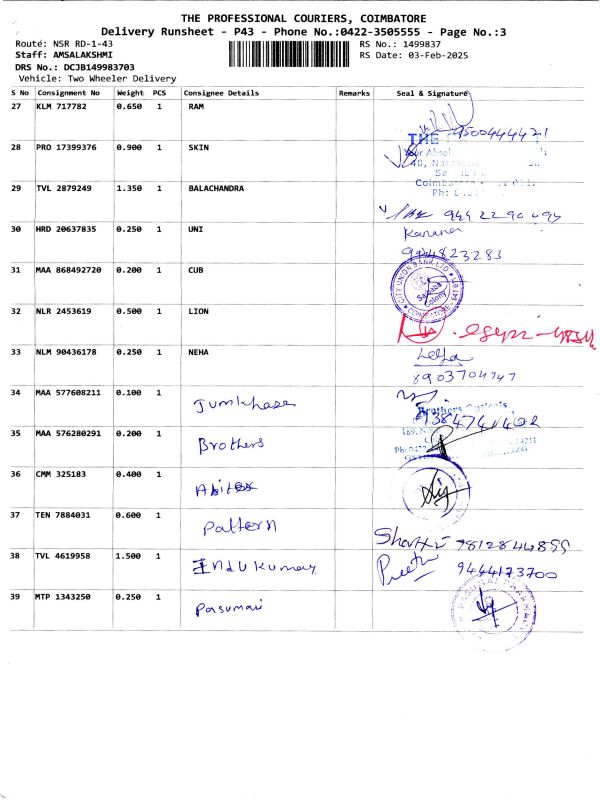 THE PROFESSIONAL COURIERS, COIMBATORE
Delivery Runsheet - P43 - Phone No.:0422-3505555 - Page No.:3
Route: NSR RD-1-43 RS No.: 1499837
Staff: AMSALAKSHMI RS Date: 03-Feb-2025
DRS No.: DCJB149983703
Vehicle: Two Wheeler Delivery
S No Consignment No Weight PCS Consignee Details Remarks Seal & Signature
27 KLM 717782 0.650 1 RAM
9500444421
28 PRO 17399376 0.900 1 SKIN
THE
Coimbatore
Ph:
29 TVL 2879249 1.350 1 BALACHANDRA
30 HRD 20637835 0.250 1 UNI
9994823283
31 MAA 868492720 0.200 1 CUB
CITY UNION BANK LTD
Saibaba Colony
COIMBATORE
32 NLR 2453619 0.500 1 LION
33 NLM 90436178 0.250 1 NEHA
8903704747
34 MAA 577608211 0.100 1 Jumkhase
Brothers
35 MAA 576280291 0.200 1 Brothers
36 CMM 325183 0.400 1
37 TEN 7884031 0.600 1 Pattern
9812844899
38 TVL 4619958 1.500 1 Indukumar Preethi 9444173700
39 MTP 1343250 0.250 1 Pasumai
PASUMAI PHARMACY